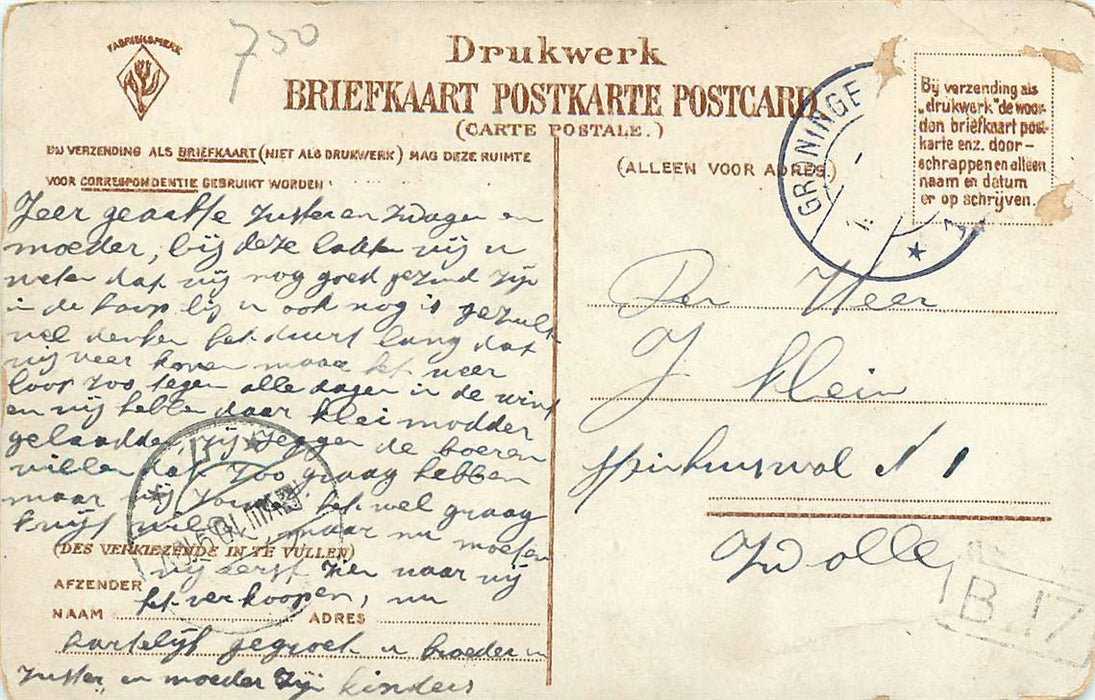 FABRIEKSMERK
750
Drukwerk
BRIEFKAART POSTKARTE POSTCARD
(CARTE POSTALE.)
BIJ VERZENDING ALS BRIEFKAART (NIET ALS DRUKWERK) MAG DEZE RUIMTE
VOOR CORRESPONDENTIE GEBRUIKT WORDEN
(ALLEEN VOOR ADRES)
By verzending als
„drukwerk" de woor-
den briefkaart post-
karte enz. door-
schrappen en alleen
naam en datum
er op schryven.
GRONINGE
Zeer geachte Zuster en Zwager en
moeder, bij deze laten wij u
weten dat wij nog goed gezond zijn
in de hoop bij u ook nog is gezult
wel denken het duurt lang dat
wij weer komen maar het weer
loop zoo tegen alle dagen in de wint
en wij hebben daar klei modder
gelaadden wij zeggen de boeren
willen dat zoo graag hebben
maar wij het wel graag
kwijt wil maar nu moeten
(DES VERKIEZENDE IN TE VULLEN)
wij eerst zien waar wij
AFZENDER
het verkoopen, nu
NAAM ADRES
hartelijk gegroet u broeder en
Zuster en moeder Zijn kinders
Den Heer
J Klein
N 1
Zwolle
B 17